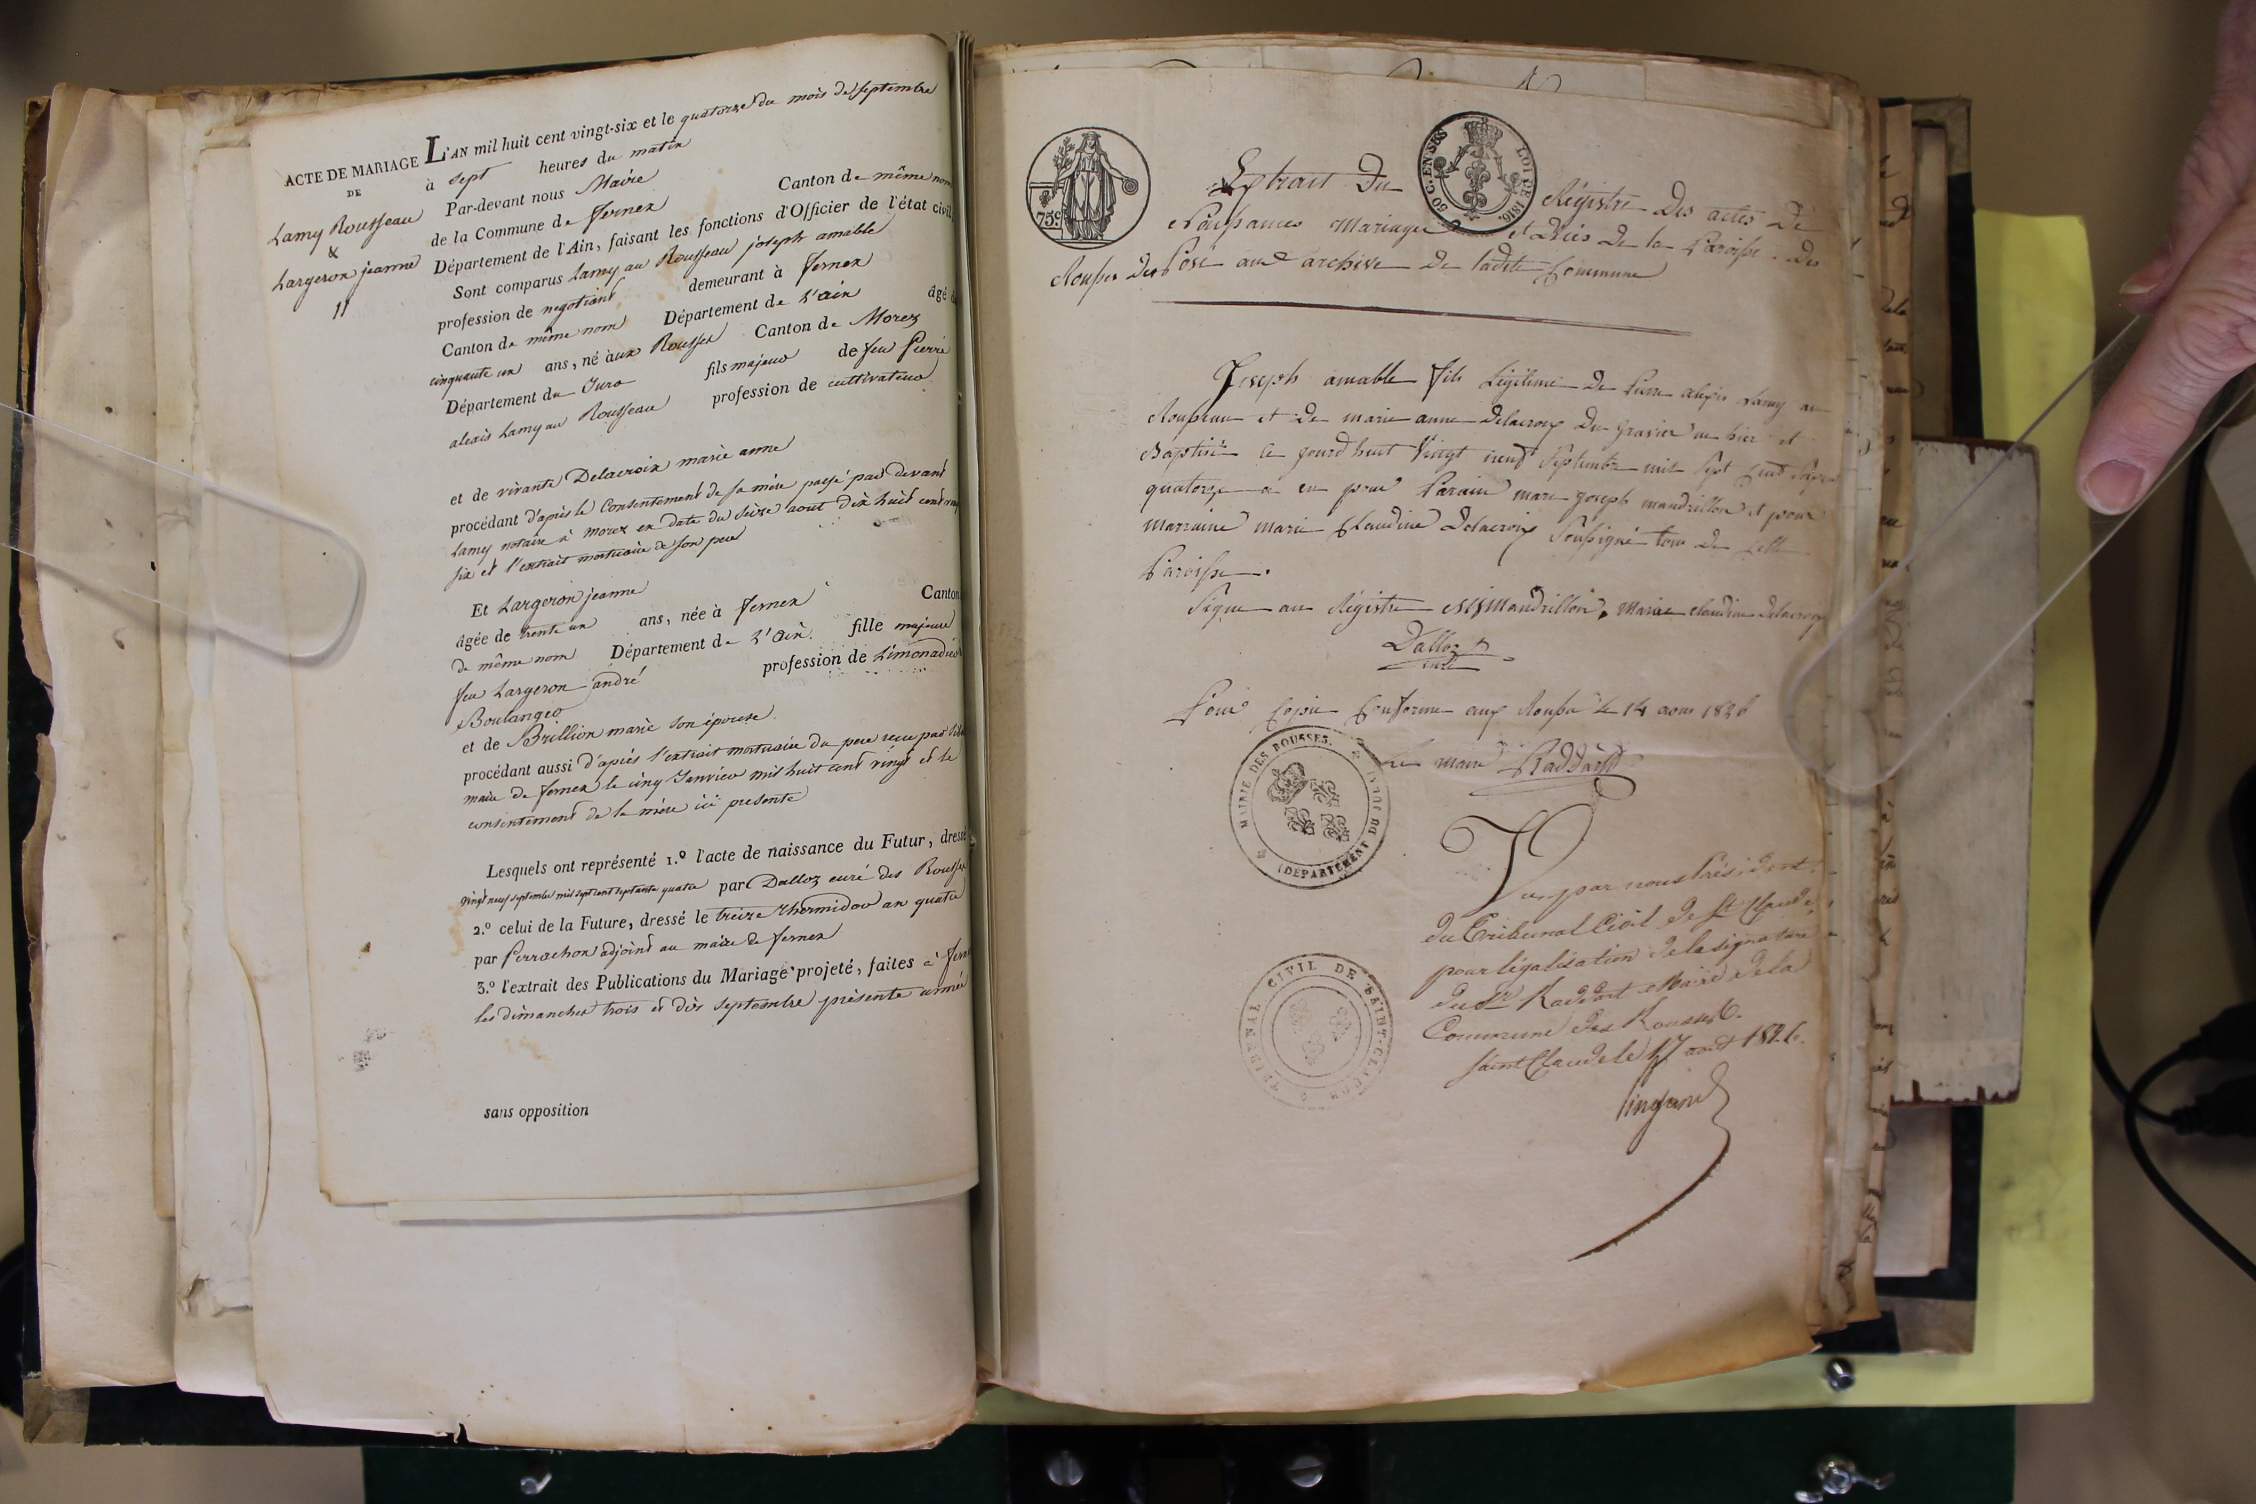 ACTE DE MARIAGE
DE
Lamy Rousseau
&
Largeron jeanne
11
L'AN mil huit cent vingt-six et le quatorze du mois de septembre
à sept heures du matin
Par-devant nous Maire
de la Commune de fernex Canton de même nom
Département de l'Ain, faisant les fonctions d'Officier de l'état civil
Sont comparus Lamy au Rousseau joseph amable
profession de negotiant demeurant à fernex
Canton de même nom Département de L'ain âgé
cinquante un ans, né aux Rousses Canton de Morez
Département du Jura fils majeur de feu Pierre
alexis Lamy au Rousseau profession de cultivateur
et de vivante Delacroix marie anne
procédant d'après le Consentement de sa mère passé par devant
Lamy notaire à Morez en date du seize aout dix huit cent
six et l'extrait mortuaire de son pere
Et Largeron jeanne
âgée de trente un ans, née à fernex Canton
de même nom Département de L'ain fille majeure
feu Largeron andré profession de Limonadier
Boulanger
et de Brillion marie son épouse
procédant aussi d'après l'extrait mortuaire du pere
maire de fernex le cinq Janvier mil huit cent vingt et le
consentement de la mère ici presente
Lesquels ont représenté 1.º l'acte de naissance du Futur, dressé
vingt neuf septembre mil sept cent septante quatre par Dalloz curé des Rousses
2.º celui de la Future, dressé le treize thermidor an quatre
par Perrachon adjoint au maire de fernex
3.º l'extrait des Publications du Mariage projeté, faites à
les dimanches trois et dix septembre présente année
sans opposition
75c
50 C. EN SUS
LOI DE 1816.
Extrait Du Régistre Des actes De
Naissances Mariages et Décés De la Paroisse Des
Rousses Déposé aux archives De ladite Commune
Joseph amable fils Légitime De Pierre alexis Lamy au
Rousseau et De marie anne Delacroix Du gravier né hier et
Baptisé ce jourd'huit Vingt neuf Septembre mil Sept Cent
quatorze a eu pour Parain marc joseph mandrillon et pour
marraine marie Claudine Delacroix Soussigné tous de cette
Paroisse.
Signé au Régistre Mandrillon, Marie claudine delacroix
Dalloz
curé
Pour Copie Conforme aux Rousses Le 14 aout 1826
Le maire Raddart
MAIRIE DES ROUSSES.
(DEPARTEMENT DU JURA)
Vu par nous Président
du Tribunal Civil de St Claude,
pour légalisation de la signature
du Sr Raddart Maire de la
Commune des Rousses.
Saint Claude le 17 août 1826.
TRIBUNAL CIVIL DE SAINT-CLAUDE